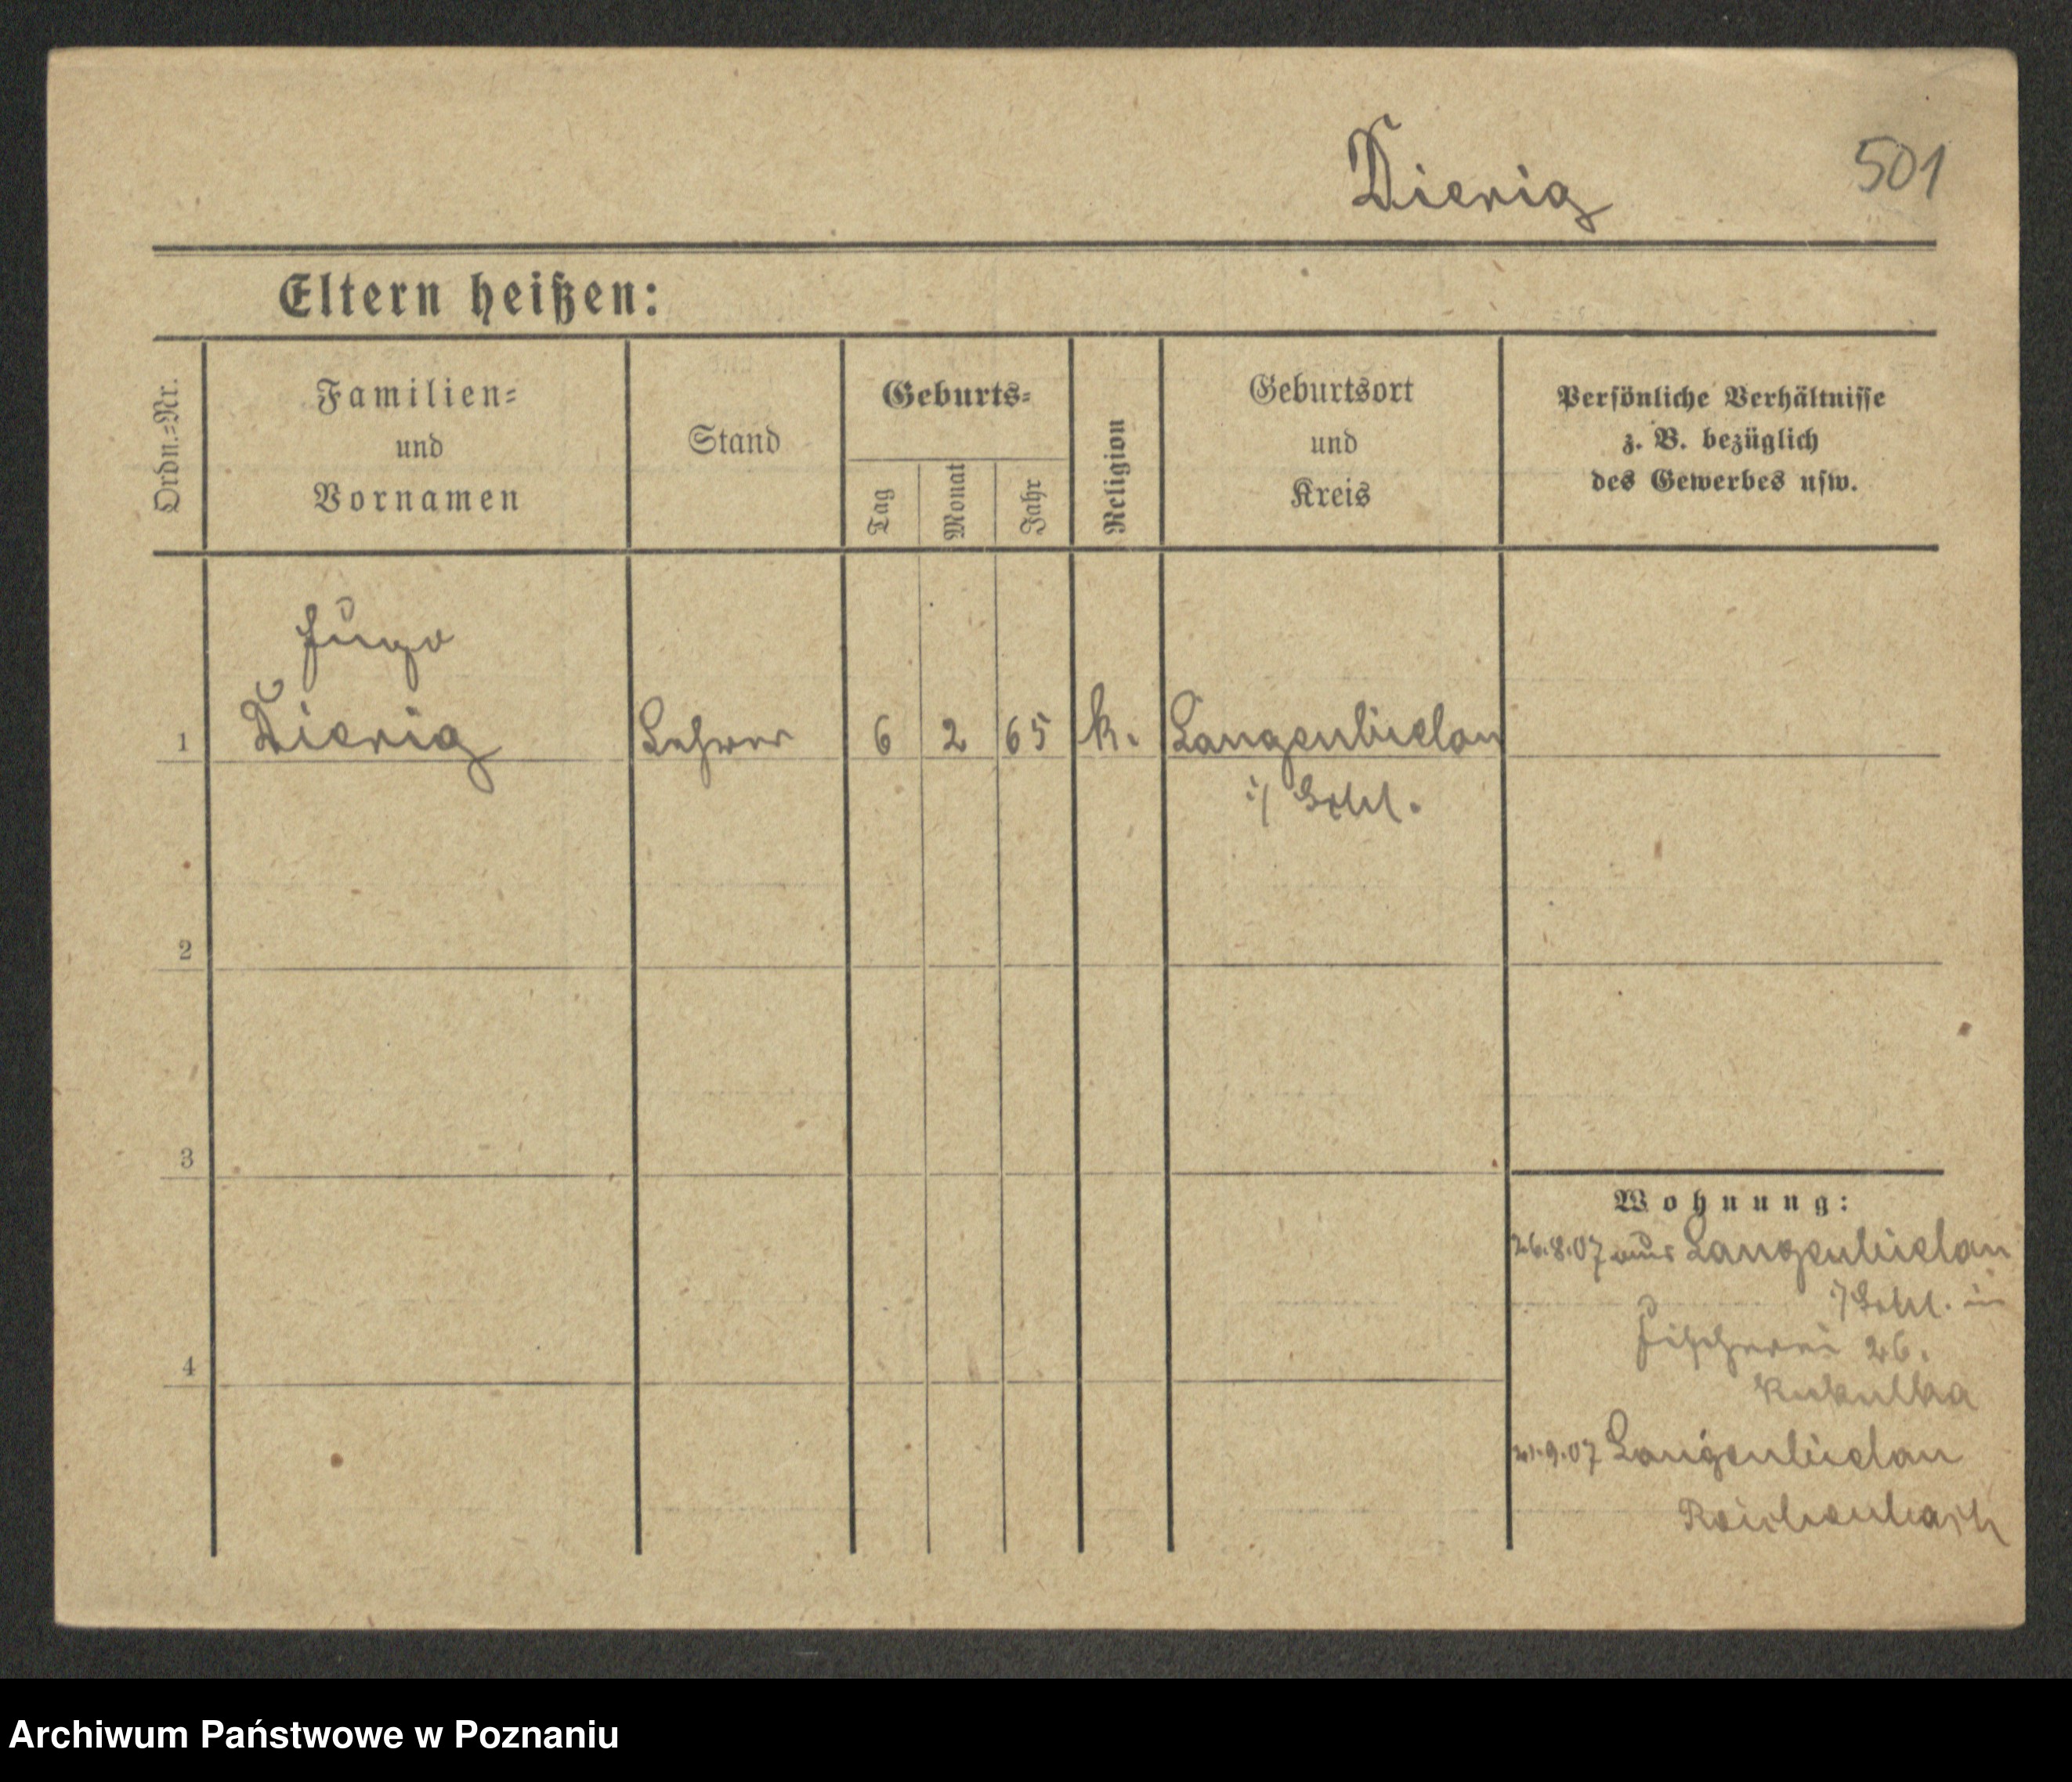 Dierig
501
Eltern heißen:
Ordn.=Nr.
Familien=
und
Vornamen
Stand
Geburts=
Tag
Monat
Jahr
Religion
Geburtsort
und
Kreis
Persönliche Verhältnisse
z. B. bezüglich
des Gewerbes usw.
Hugo
1 Dierig Lehrer 6 2 65 k. Langenbielau
i/ Schl.
2
3
4
Wohnung:
26.8.07 aus Langenbielau
i/Schl. in
Fischerei 26.
Kukulka
21.9.07 Langenbielau
Reichenbach
Archiwum Państwowe w Poznaniu